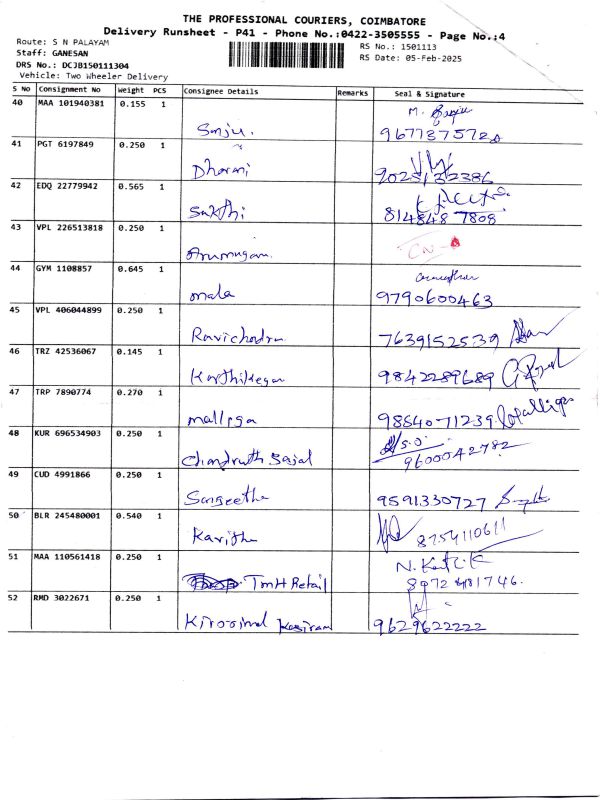 THE PROFESSIONAL COURIERS, COIMBATORE
Delivery Runsheet - P41 - Phone No.:0422-3505555 - Page No.:4
Route: S N PALAYAM
Staff: GANESAN
DRS No.: DCJB150111304
Vehicle: Two Wheeler Delivery
RS No.: 1501113
RS Date: 05-Feb-2025
S No Consignment No Weight PCS Consignee Details Remarks Seal & Signature
40 MAA 101940381 0.155 1
Sanju. 9677375720
41 PGT 6197849 0.250 1
Dharani
42 EDQ 22779942 0.565 1
Sakthi 814848 7808
43 VPL 226513818 0.250 1
Arumugam CN
44 GYM 1108857 0.645 1
mala 9790600463
45 VPL 406044899 0.250 1
Ravichodra 7639152539
46 TRZ 42536067 0.145 1
Karthikegan 9842289689
47 TRP 7890774 0.270 1
malliga 98640-71239
48 KUR 696534903 0.250 1
9600042782
49 CUD 4991866 0.250 1
Sangeetha 9591330727
50 BLR 245480001 0.540 1
Kavitha 8754110611
51 MAA 110561418 0.250 1
TMH Retail 8972481746.
52 RMD 3022671 0.250 1
9629622222